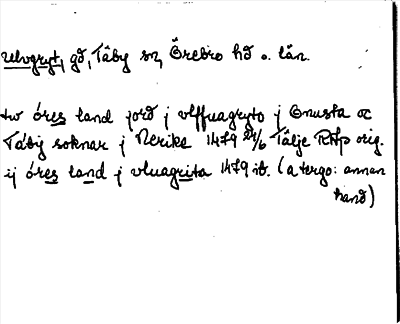 Ulvgryt, gd, Täby sn, Örebro hd o. län.
tw öres land jord j vlffuagryto j Gnusta oc
Täby soknar j Nerike 1479 24/6 Tälje RAp orig.
ij öres land j vluagrita 1479 ib. (a tergo: annan
hand)